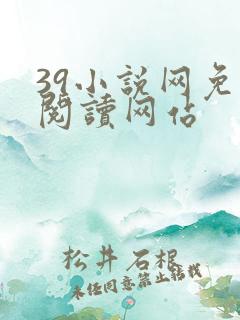 39小说网免
閱讀网佔
松井石根
未经同意禁止转载